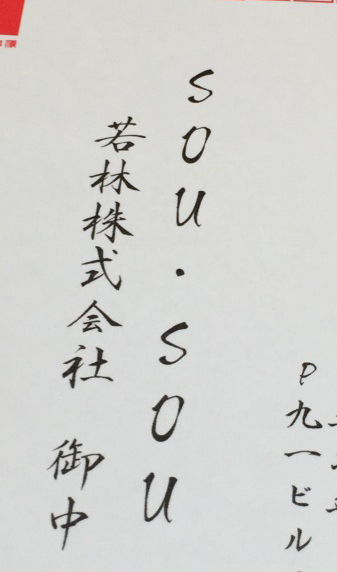 P九一ビル
SOU・SOU
若林株式会社 御中